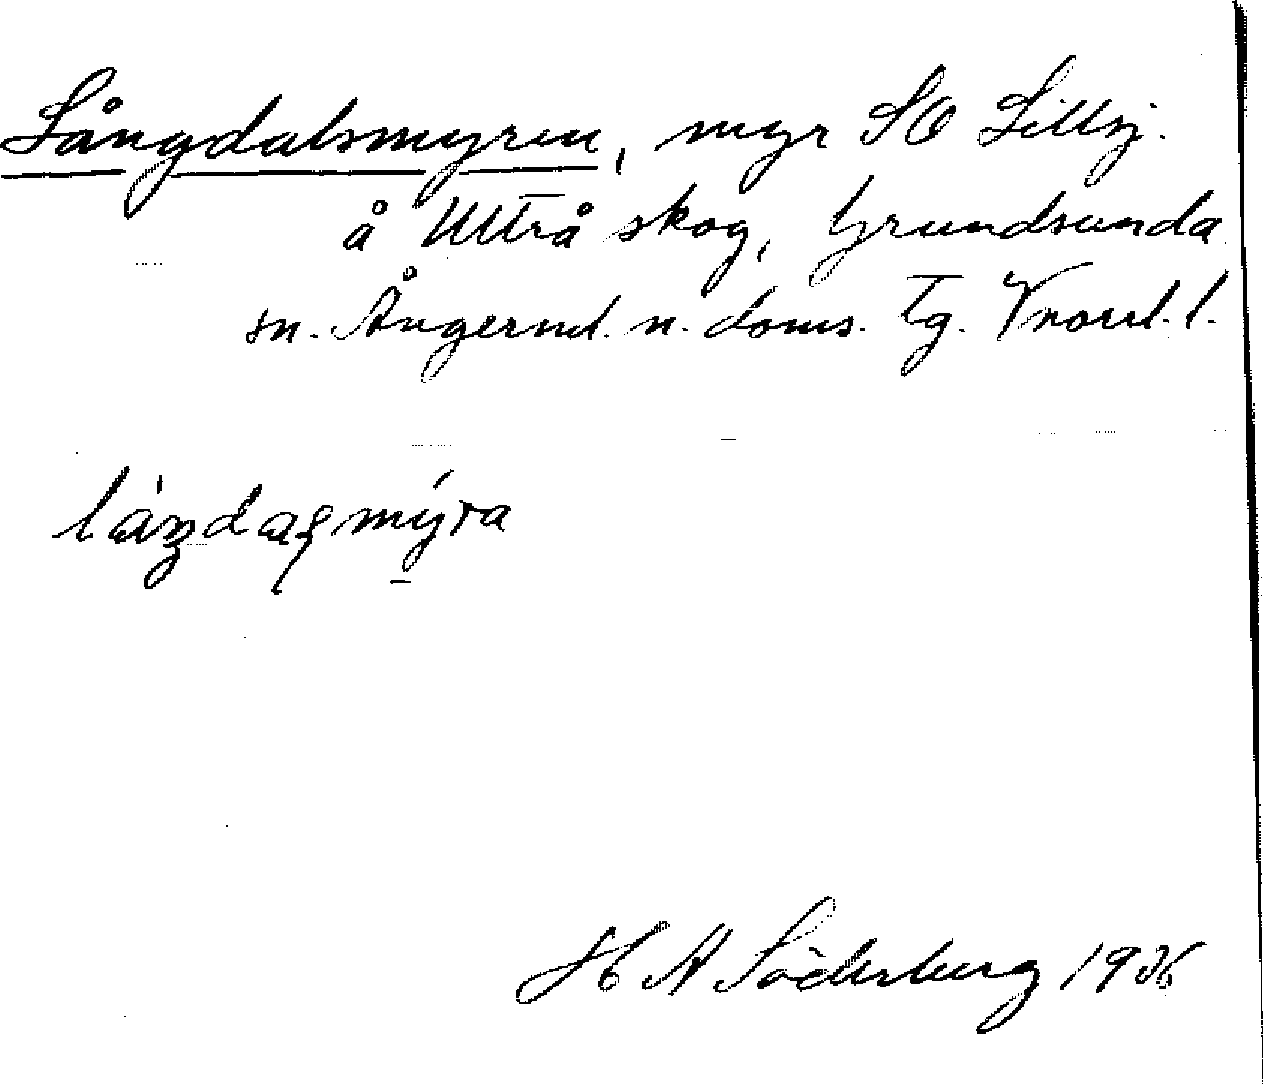 Långdalsmyren, myr SO Lillsj.
å Ultrå skog, Grundsunda
sn. Ångerml. n. doms. tg. Vnorrl. l.
H A Söderberg 1936